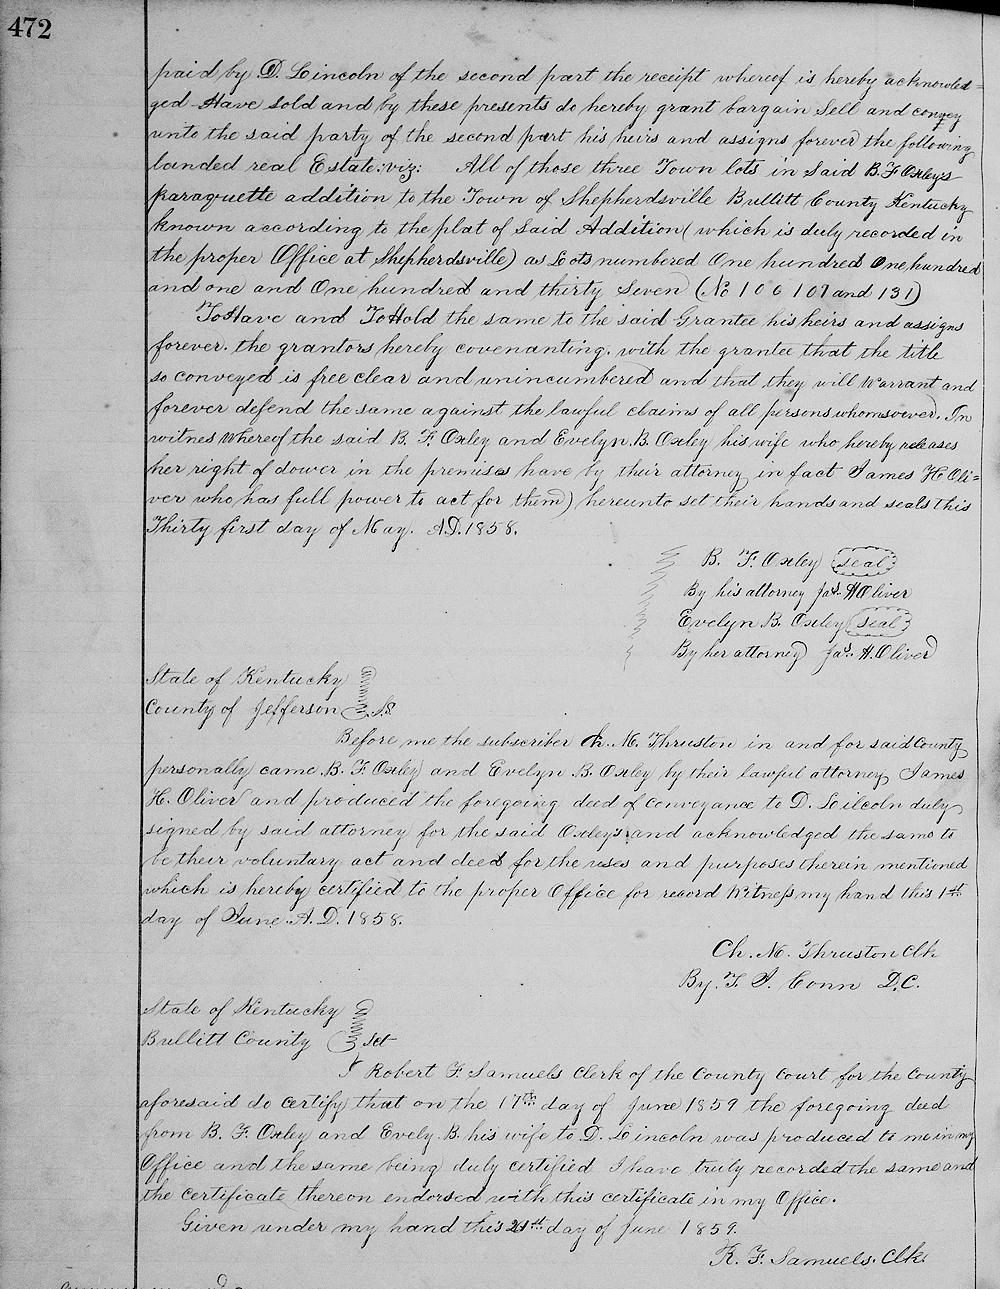 472
paid by D. Lincoln of the second part the receipt whereof is hereby acknowled=
ged Have sold and by these presents do hereby grant bargain Sell and convey
unto the said party of the second part his heirs and assigns forever the following
landed real Estate: viz: All of those three Town lots in Said B. F Oxley's
paraquette addition to the Town of Shepherdsville Bullitt County Kentucky
known according to the plat of Said Addition (which is duly recorded in
the proper Office at Shepherdsville) as Lots numbered One hundred One hundred
and one and One hundred and thirty Seven (No 100 101 and 131)
To Have and To Hold the same to the said Grantee his heirs and assigns
forever. the grantors hereby covenanting. with the grantee that the title
so conveyed is free clear and unincumbered and that they will Warrant and
forever defend the same against the lawful claims of all persons whomsoever. In
witnes Whereof the said B. F. Oxley and Evelyn B. Oxley his wife who hereby releases
her right of dower in the premises have by their attorney in fact James H. Oli=
ver who has full power to act for them) hereunto set their hands and seals this
Thirty first day of May. A.D. 1858.
B. F. Oxley seal
By his attorney Jas. H Oliver
Evelyn B. Oxley seal
By her attorney Jas. H. Oliver
State of Kentucky
County of Jefferson S.S.
Before me the subscriber Ch. M. Thruston in and for said County
personally came B. F Oxley and Evelyn B. Oxley by their lawful attorney James
H. Oliver and produced the foregoing deed of conveyance to D. Lilcoln duly
signed by said attorney for the said Oxley's and acknowledged the same to
be their voluntary act and deed for the uses and purposes therein mentioned
which is hereby certified to the proper Office for record Witness my hand this 1st
day of June. A. D. 1858.
Ch. M. Thruston Clk
By. T. J. Conn D.C.
State of Kentucky
Bullitt County Sct
I Robert F. Samuels Clerk of the County Court for the County
aforesaid do certify that on the 17th day of June 1859 the foregoing deed
from B. F. Oxley and Evely. B. his wife to D. Lincoln was produced to me in my
Office and the same being duly certified I have truly recorded the same and
the certificate thereon endorsed with this certificate in my Office.
Given under my hand this 21st day of June 1859.
R. F. Samuels. Clk.